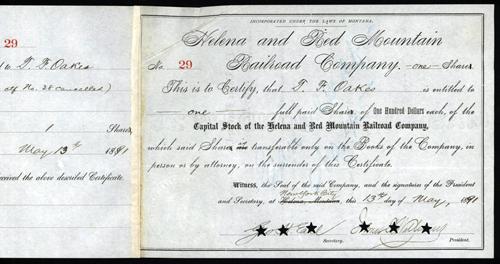 29
T. F. Oakes
No. 28 cancelled)
1 Shares
May 13th 1891
received the above described Certificate.
INCORPORATED UNDER THE LAWS OF MONTANA.
Helena and Red Mountain
No. 29 Railroad Company. -one- Shares
This is to Certify, that T. F. Oakes is entitled to
one full paid Share of One Hundred Dollars each, of the
Capital Stock of the Helena and Red Mountain Railroad Company,
which said Share is transferable only on the Books of the Company, in
person or by attorney, on the surrender of this Certificate.
Witness, the Seal of the said Company, and the signatures of the President
New York City
and Secretary, at Helena, Montana, this 13th day of May, 1891
Secretary. President.